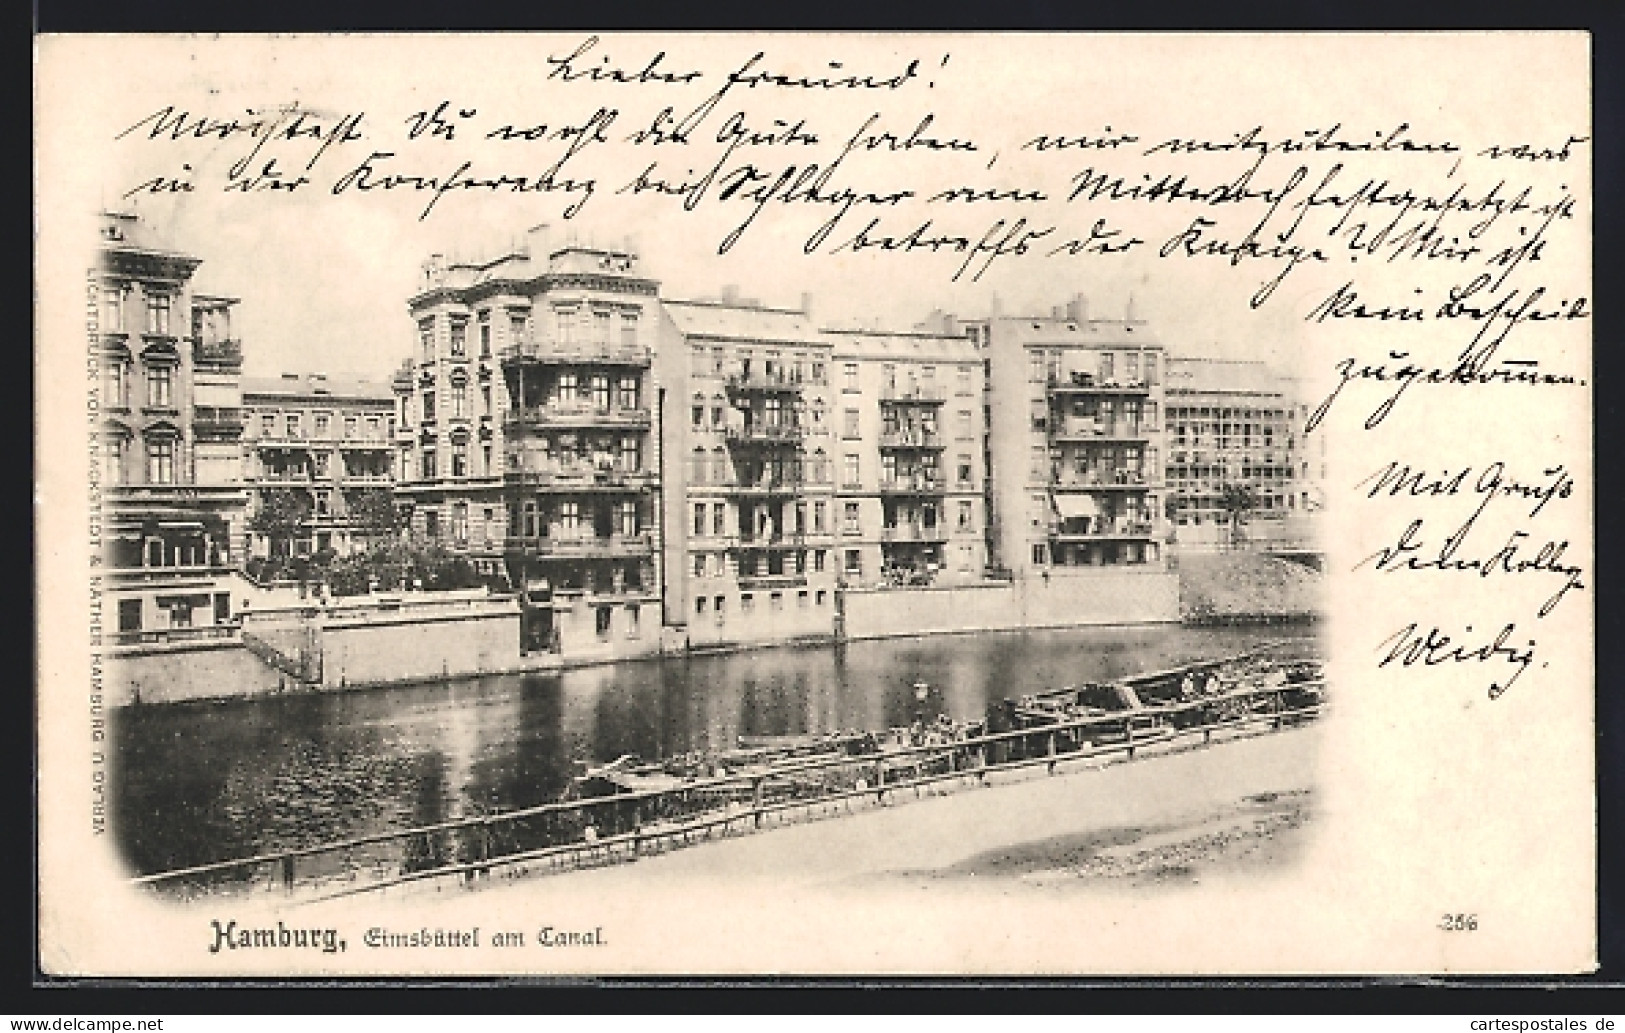 Lieber Freund!
Möchtest Du wohl die Güte haben, mir mitzuteilen, was
in der Konferenz bei Schlager am Mittwoch festgesetzt ist
betreffs der Kneipe? Mir ist
kein Bescheid
zugekom̅en.
Mit Gruß
Dein Kollege
Weidig.
LICHTDRUCK VON KNACKSTEDT & NÄTHER HAMBURG
Hamburg, Eimsbüttel am Canal.
256
cartespostales de